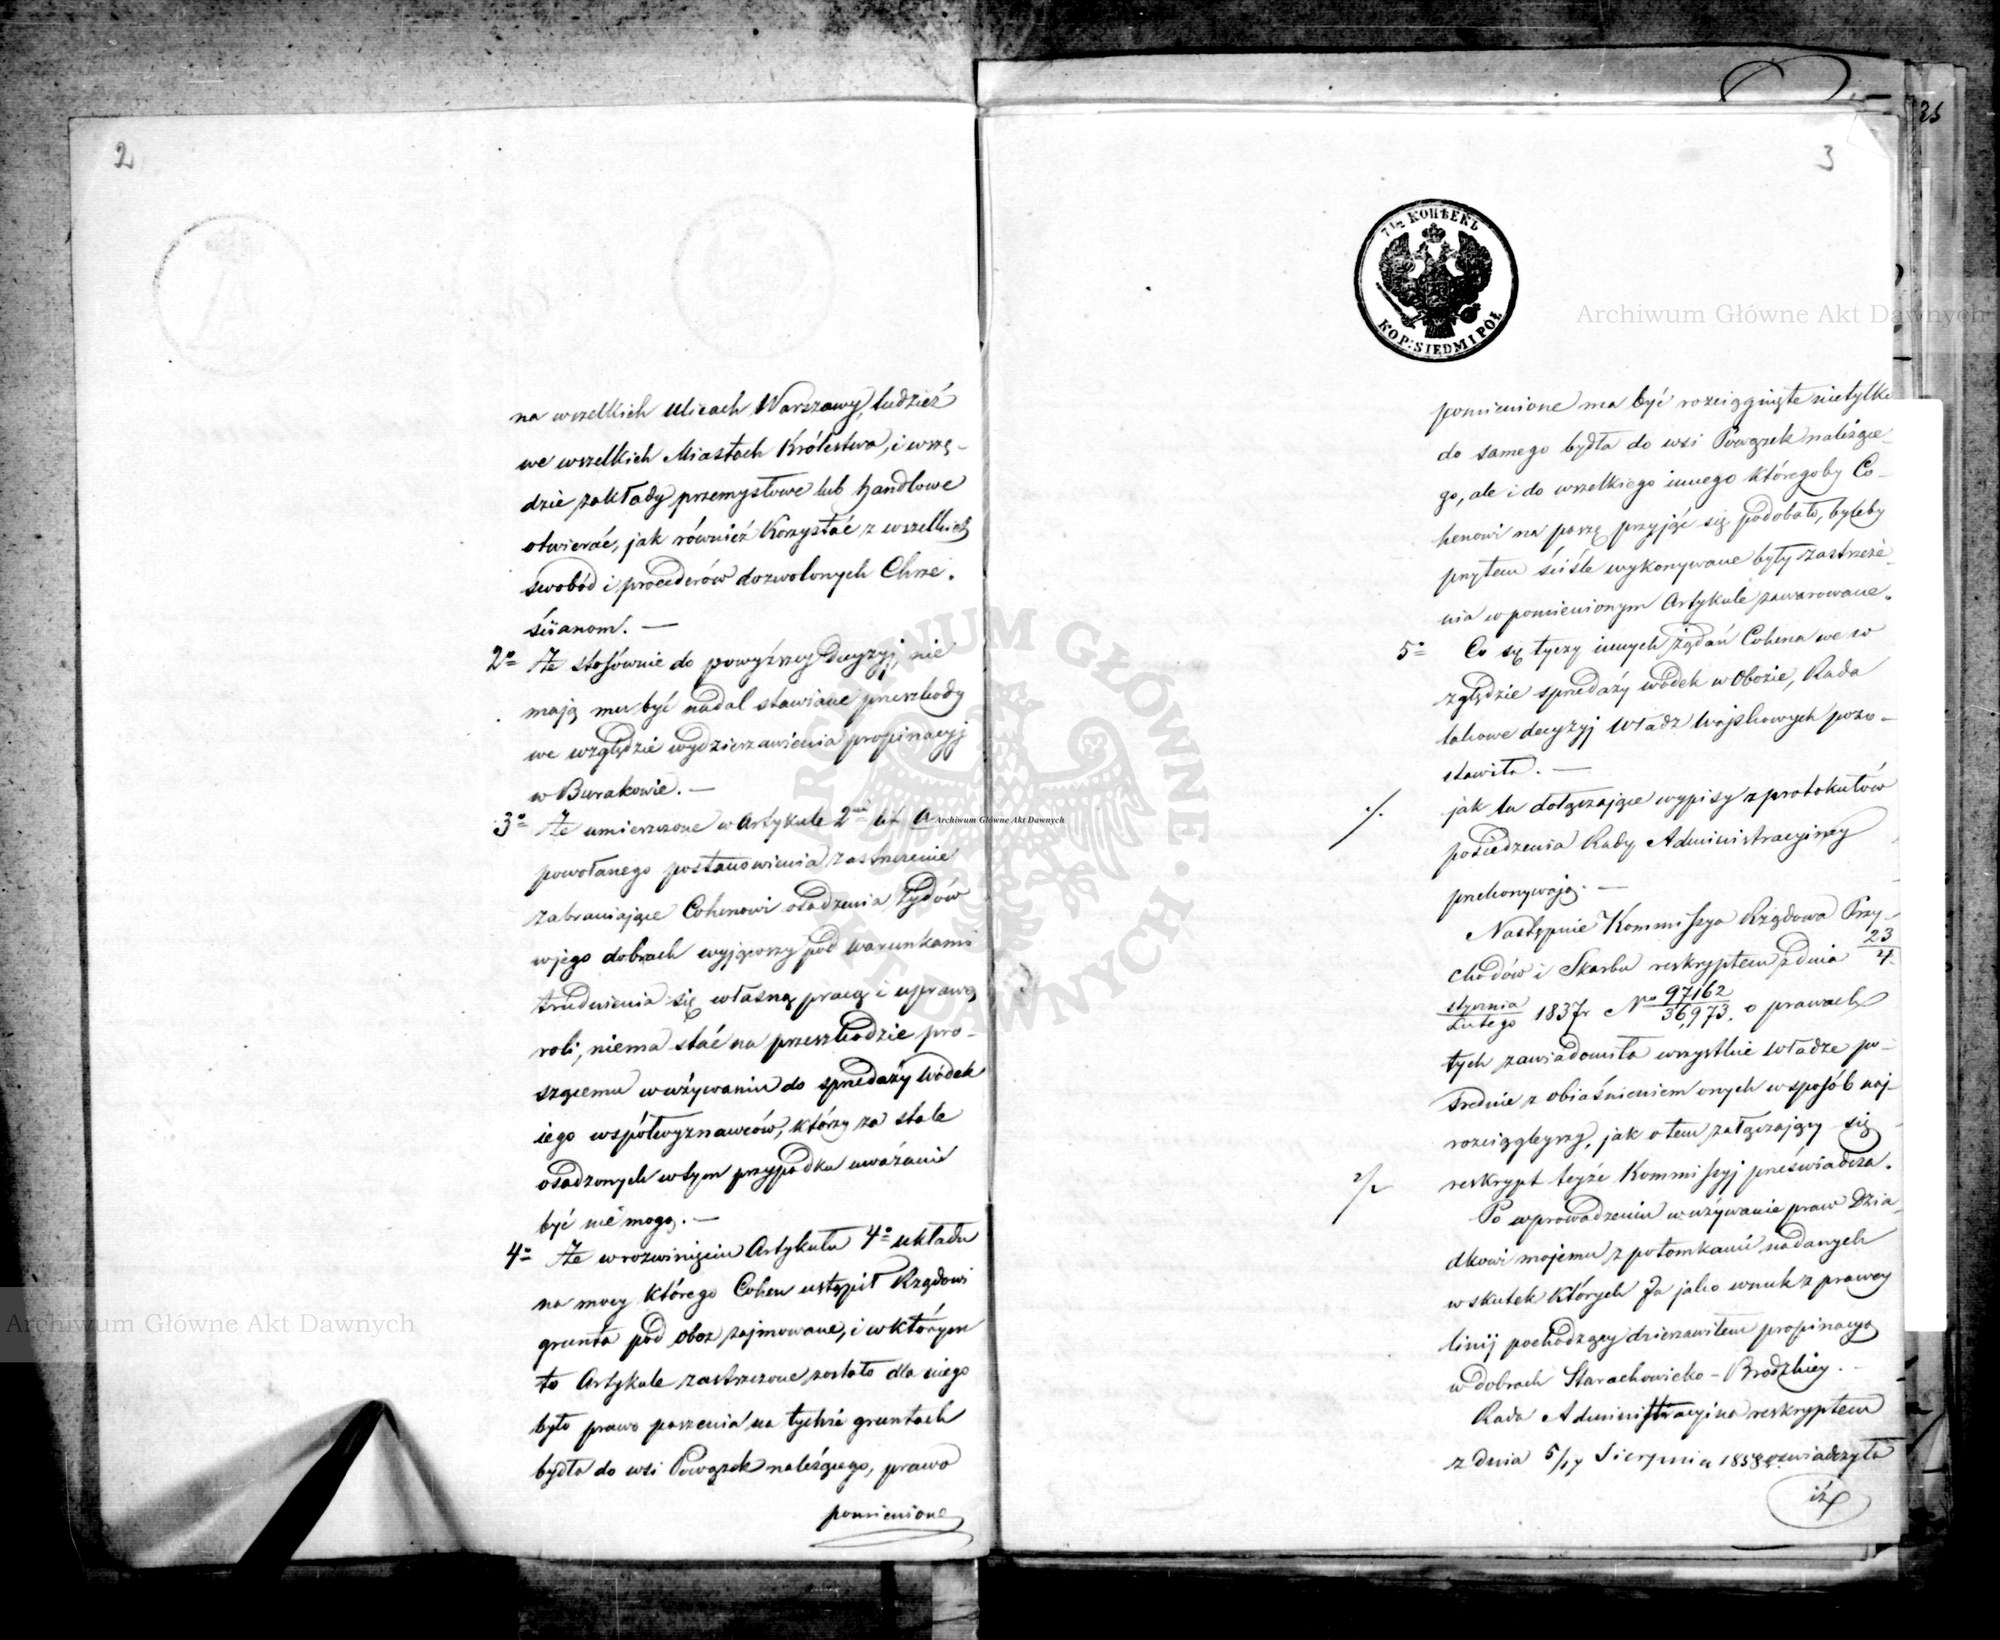 2
na wszelkich ulicach Warszawy, tudzież
we wszelkich Miastach Królestwa, i wszę-
dzie zakłady przemysłowe lub handlowe
otwierać, jak również korzystać z wszelkich
swobód i procederów dozwolonych Chrze-
ściianom. —
2º Że stosównie do powyższey decyzyj, nie
mają mu być nadal stawiane przeszkody
we względzie wydzierzawienia propinacyj
w Burakowie. —
3º Że umieszczone w Artykule 2 lit a
powołanego postanowienia zastrzeżenie
zabraniające Cohenowi osadzenia Żydów
w jego dobrach wyjąwszy pod warunkami
trudnienia się własną pracą i uprawą
roli, niema stać na przeszkodzie pro-
szącemu w używaniu do sprzedaży wódek
iego współwyznawców, którzy za stale
osadzonych w tym przypadku uważani
być nie mogą. —
4º Że w rozwinięciu Artykułu 4º układu
na mocy którego Cohen ustąpił Rządowi
grunta pod oboz zajmowane, i w którym
to Artykule zastrzeżone zostało dla niego
było prawo paszenia na tychże gruntach
bydła do wsi Powązek należącego, prawo
pomienione
3
7 1/2 КОПѢЕКЪ
KOP: SIEDM I PÓŁ
pomienione ma być rozciągnięte nietylko
do samego bydła do wsi Powązek należące-
go, ale i do wszelkiego innego któregoby Co-
henowi na paszę przyjąć się podobało, byleby
przytem ściśle wykonywane były zastrzeże-
nia w pomienionym Artykule zawarowane.
5º Co się tyczy innych żądań Cohena we w
zględzie sprzedaży wódek w Obozie, Rada
takowe decyzyj Władz Wojskowych pozo-
stawiła. —
jak tu dołączające wypisy z protokułów
posiedzenia Rady Administracyjney
przekonywają. —
Następnie Kommissya Rządowa Przy-
chodów i Skarbu reskryptem z dnia 23/4
stycznia/Lutego 1837r No 97162/36,973. o prawach
tych zawiadomiła wszystkie władze po-
srednie z obiaśnieniem onych w sposób naj-
rozciągleyszy, jak o tem załączający się
reskrypt teyże Kommissyj przeświadcza.
Po wprowadzeniu w używanie praw Dzia-
dkowi mojemu z potomkami nadanych
w skutek których Ja jako wnuk z prawey
linij pochodzący dzierzawiłem propinacyą
w dobrach Starachowicko-Brodzkiey. —
Rada Administracyina reskryptem
z dnia 5/17 Sierpnia 1858r. oświadczyła
iż
35
Archiwum Główne Akt Dawnych
Archiwum Główne Akt Dawnych
Archiwum Główne Akt Dawnych
ARCHIWUM GŁÓWNE AKT DAWNYCH